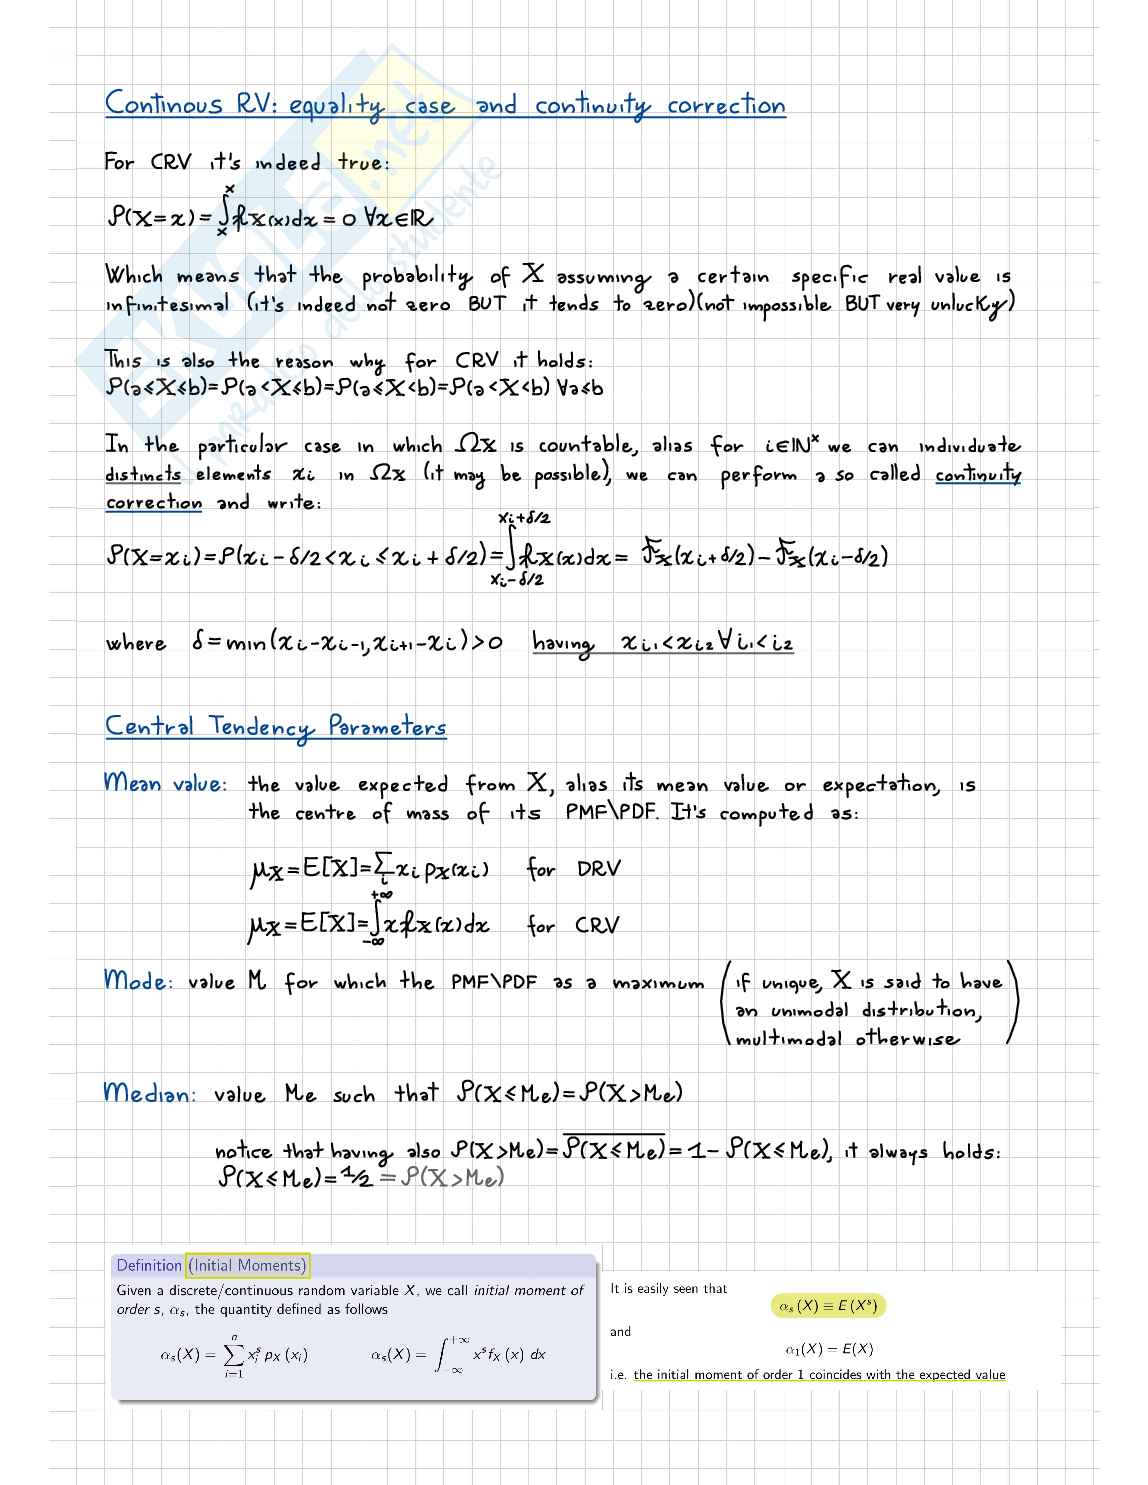 Continous RV: equality case and continuity correction
For CRV it's indeed true:
P(X=x)=∫ₓˣ fX(x)dx=0 ∀x∈ℝ
Which means that the probability of X assuming a certain specific real value is
infinitesimal (it's indeed not zero BUT it tends to zero)(not impossible BUT very unlucky)
This is also the reason why for CRV it holds:
P(a≤X≤b)=P(a<X≤b)=P(a≤X<b)=P(a<X<b) ∀a≤b
In the particular case in which Ωx is countable, alias for i∈ℕˣ we can individuate
distincts elements xi in Ωx (it may be possible), we can perform a so called continuity
correction and write:
P(X=xi)=P(xi-δ/2<xi≤xi+δ/2)=∫_{xi-δ/2}^{xi+δ/2} fX(x)dx= Fx(xi+δ/2)-Fx(xi-δ/2)
where δ=min(xi-xi-1,xi+1-xi)>0 having xi1<xi2 ∀i1<i2
Central Tendency Parameters
Mean value: the value expected from X, alias its mean value or expectation, is
the centre of mass of its PMF\PDF. It's computed as:
μx=E[X]=∑ᵢ xi px(xi) for DRV
μx=E[X]=∫_{-∞}^{+∞} x fx(x)dx for CRV
Mode: value M for which the PMF\PDF as a maximum (if unique, X is said to have
an unimodal distribution,
multimodal otherwise)
Median: value Me such that P(X≤Me)=P(X>Me)
notice that having also P(X>Me)=P̅(̅X̅≤̅M̅e̅)̅=1-P(X≤Me), it always holds:
P(X≤Me)=1/2=P(X>Me)
Definition (Initial Moments)
Given a discrete/continuous random variable X, we call initial moment of
order s, αs, the quantity defined as follows
αs(X) = ∑_{i=1}^{n} xi^s pX (xi) αs(X) = ∫_{-∞}^{+∞} x^s fX (x) dx
It is easily seen that
αs (X) ≡ E (X^s)
and
α1(X) = E(X)
i.e. the initial moment of order 1 coincides with the expected value